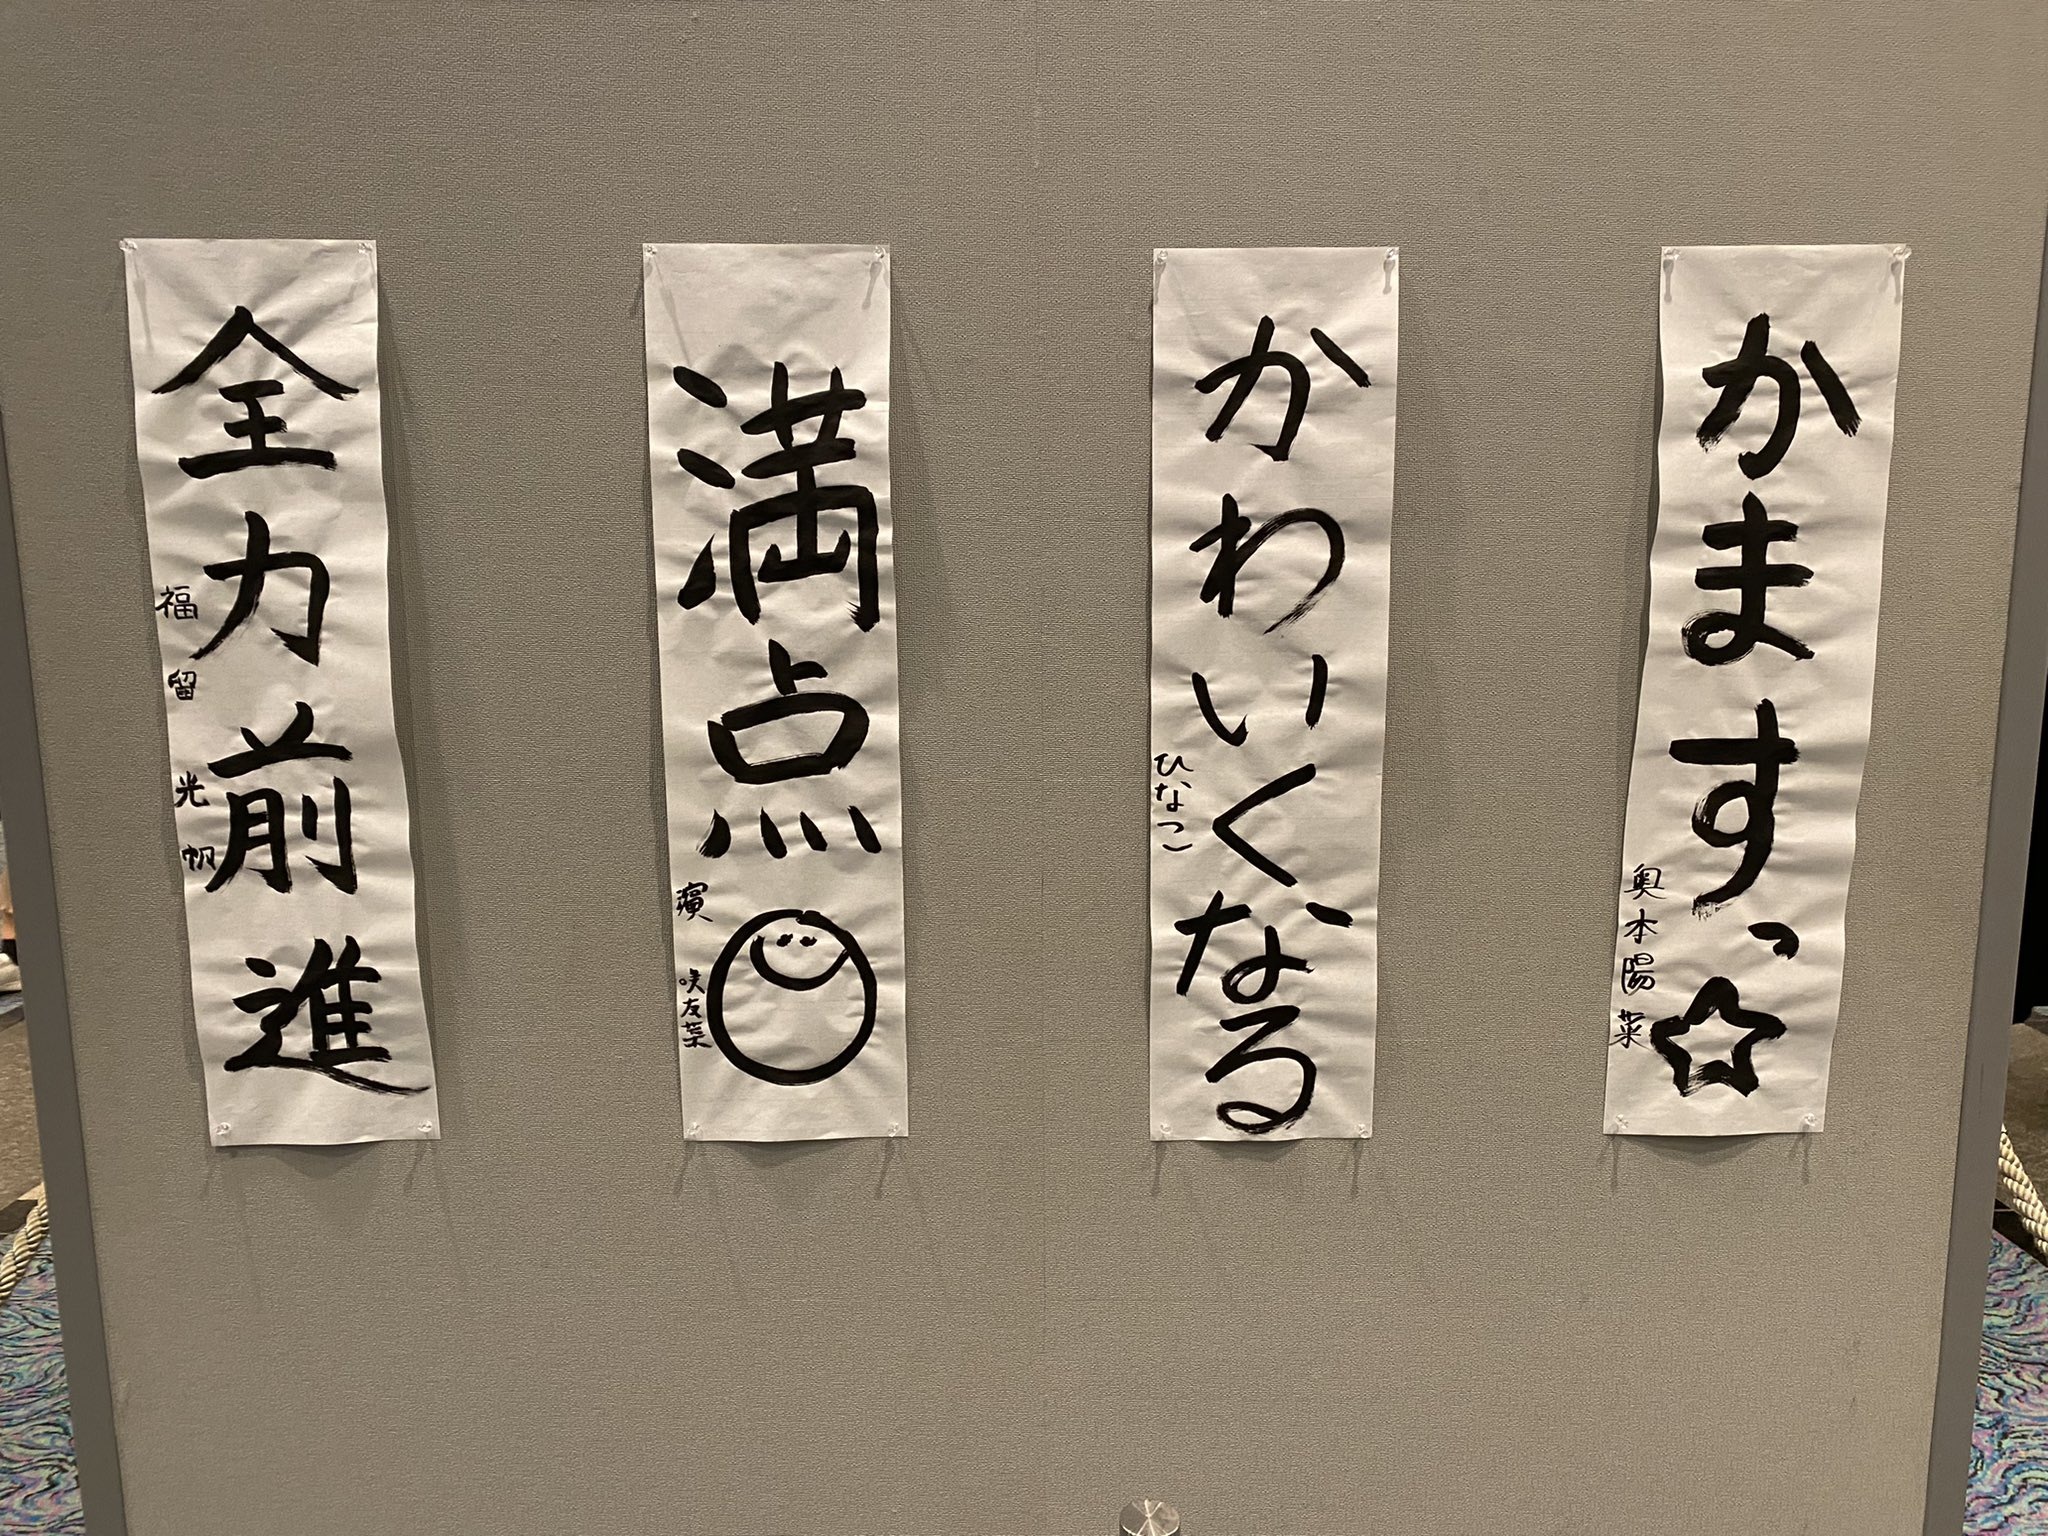 かますっ☆
奥本陽菜
かわいくなる
ひなつこ
満点
濵咲友菜
全力前進
福留光帆